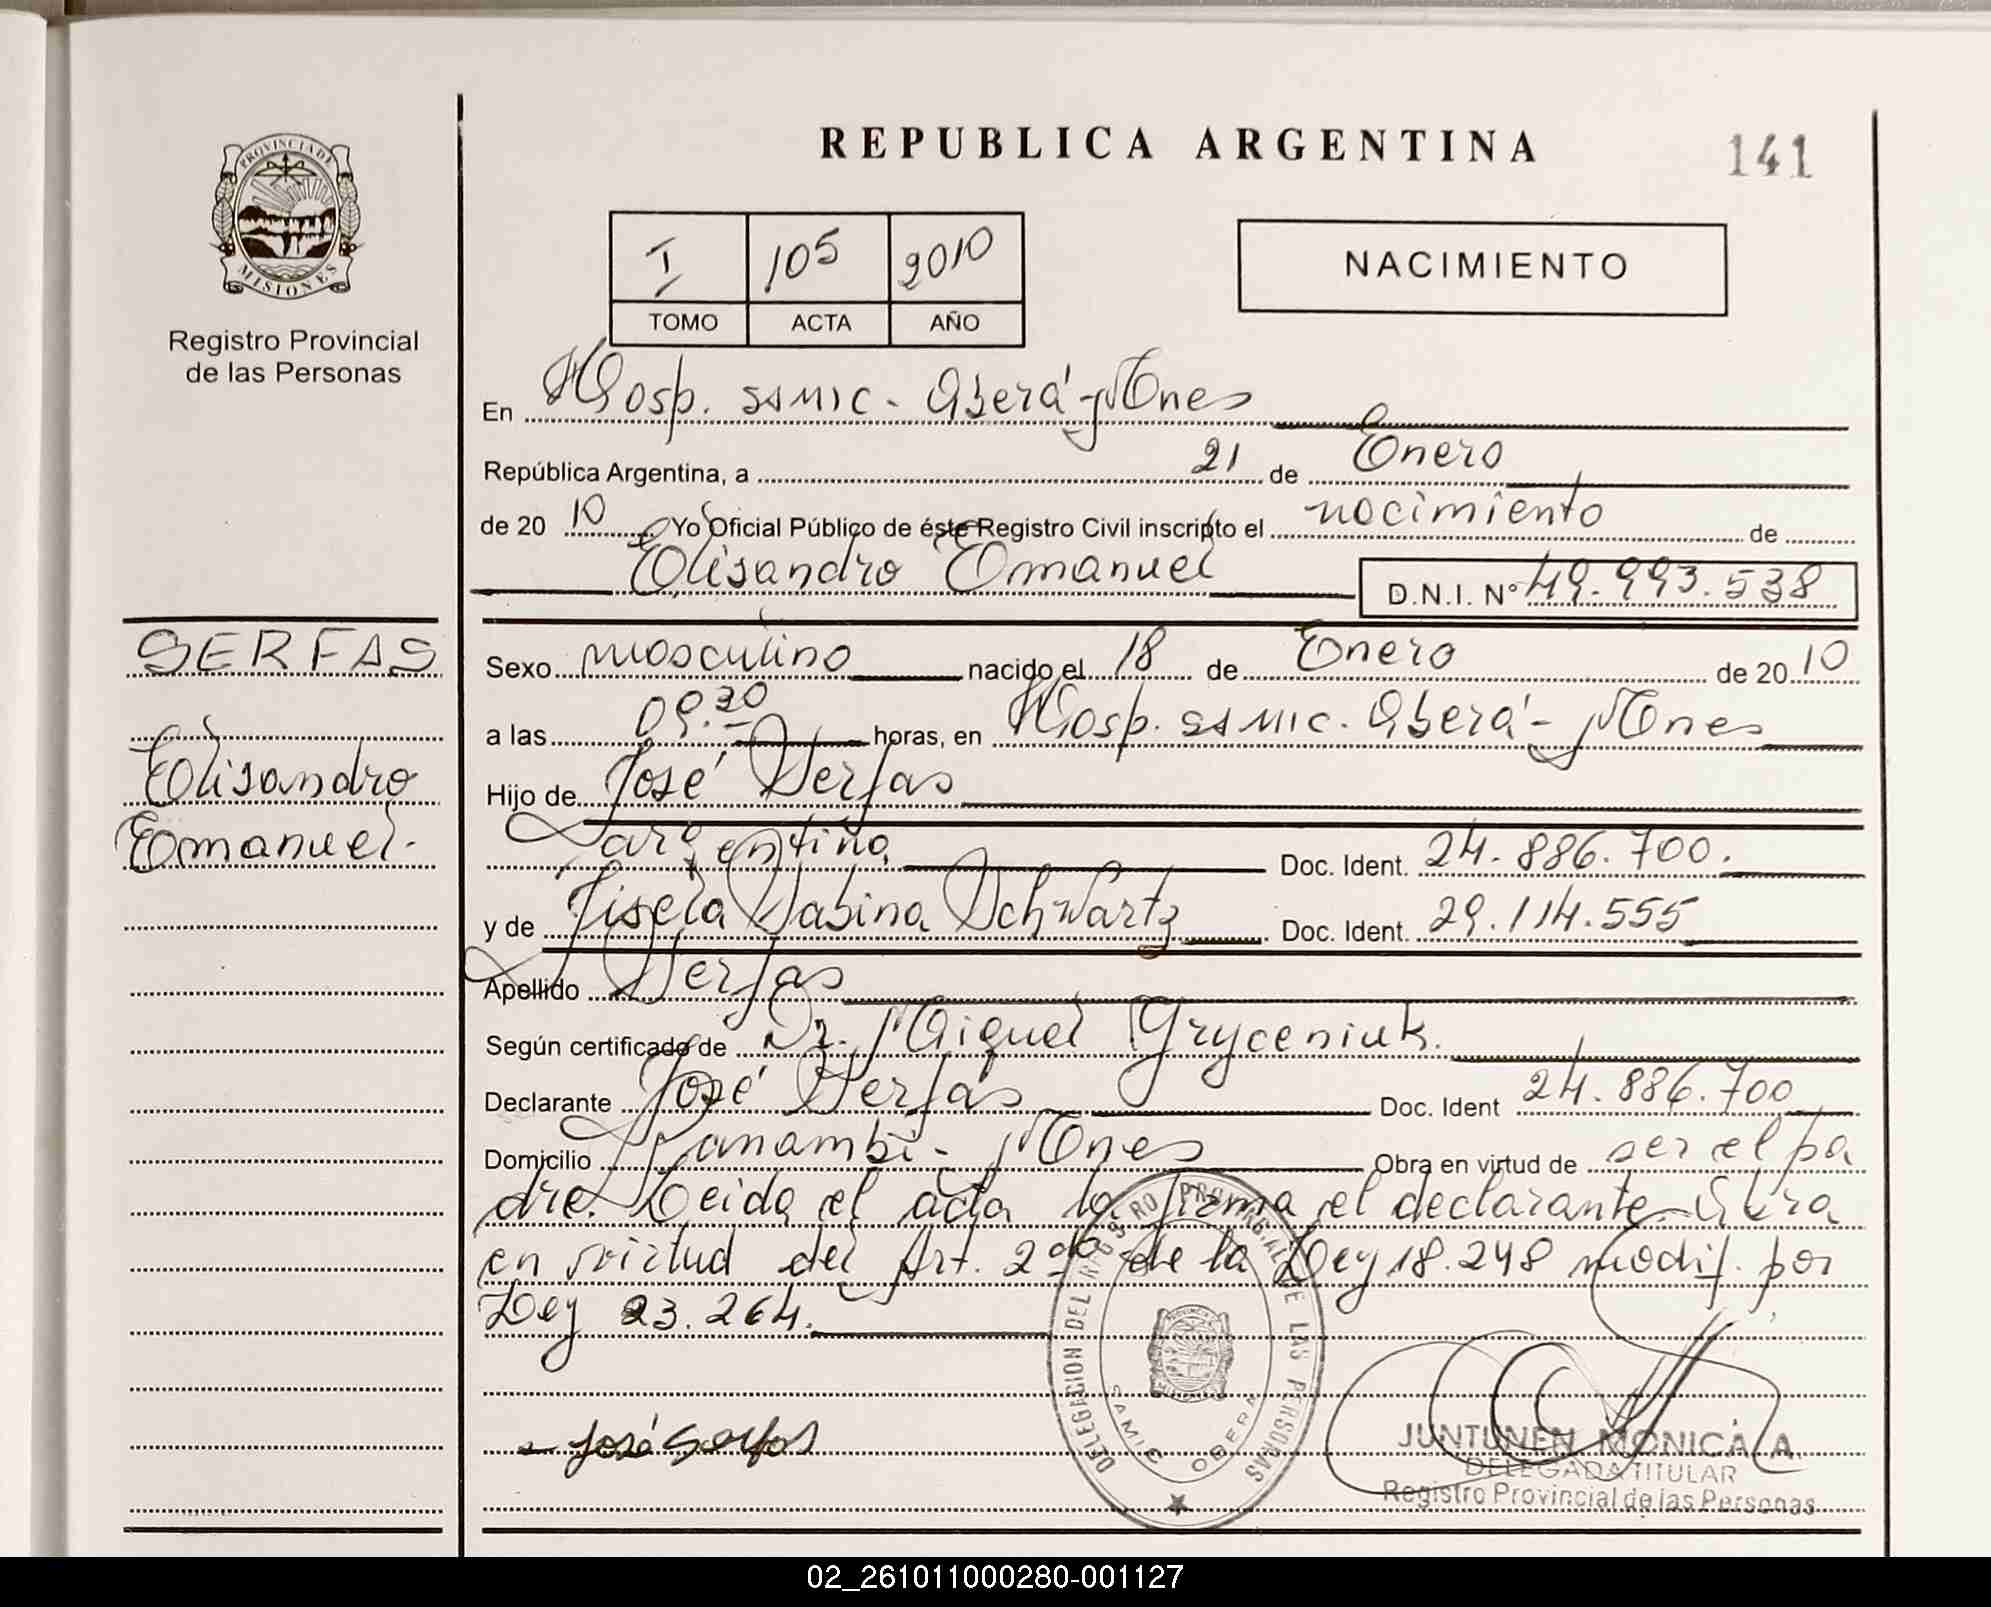 REPUBLICA ARGENTINA
141
PROVINCIA DE
MISIONES
Registro Provincial
de las Personas
I 105 2010
TOMO ACTA AÑO
NACIMIENTO
En Hosp. SAMIC - Oberá - Mnes
República Argentina, a 21 de Enero
de 20 10 Yo Oficial Público de éste Registro Civil inscripto el nacimiento de
Elisandro Emanuel D.N.I. Nº 49.993.538
SERFAS
Elisandro
Emanuel.
Sexo masculino nacido el 18 de Enero de 20 10
a las 09.30 horas, en Hosp. SAMIC. Oberá - Mnes
Hijo de José Serfas
argentino Doc. Ident. 24.886.700.
y de Gisela Sabina Schwartz Doc. Ident. 29.114.555
Apellido Serfas
Según certificado de Dr. Miguel Gryceniuk.
Declarante José Serfas Doc. Ident 24.886.700
Domicilio Panambi - Mnes Obra en virtud de ser el pa
dre. Leida el acta la firma el declarante. Obra
en virtud del Art. 2do de la Ley 18.248 modif. por
Ley 23.264.
José Serfas
DELEGACION DEL REGISTRO PROVINCIAL DE LAS PERSONAS
SAMIC OBERA
JUNTUNEN MONICA A.
DELEGADA TITULAR
Registro Provincial de las Personas
02_261011000280-001127